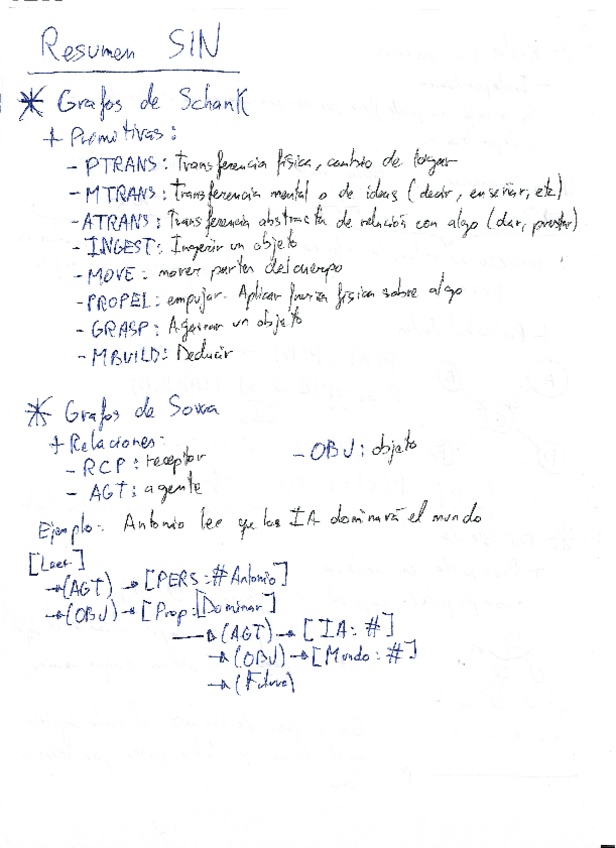 Resumen SIN
* Grafos de Schank
+ Primitivas:
- PTRANS: Transferencia física, cambio de lugar
- MTRANS: Transferencia mental o de ideas (decir, enseñar, etc)
- ATRANS: Transferencia abstracta de relación con algo (dar, prestar)
- INGEST: Ingerir un objeto
- MOVE: mover partes del cuerpo
- PROPEL: empujar. Aplicar fuerza física sobre algo
- GRASP: Agarrar un objeto
- MBUILD: Deducir
* Grafos de Sowa
+ Relaciones:
- RCP: receptor
- OBJ: objeto
- AGT: agente
Ejemplo: Antonio lee que las IA dominará el mundo
[Leer]
→(AGT) → [PERS: # Antonio]
→(OBJ) → [Prop:[Dominar]
→(AGT) → [IA: #]
→(OBJ) → [Mundo: #]
→(Futuro)